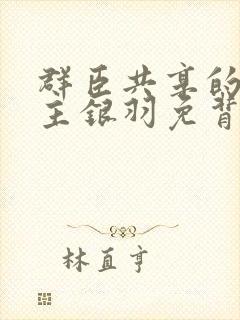 群臣共享的
主银羽免背
林直亨